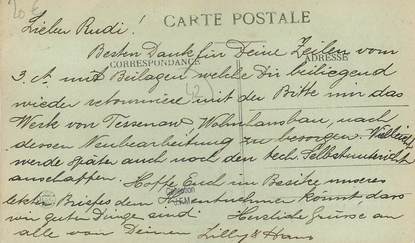 20 €
Lieber Rudi!
CARTE POSTALE
Besten Dank für Deine Zeilen vom
CORRESPONDANCE
ADRESSE
3. d. mit Beilagen, welche Dir beiliegend
wieder retourniere mit der Bitte mir das
Werk von Wohnhausbau, nach
dessen Neubearbeitung zu besorgen. Vielleicht
werde später auch noch den tech. Selbstunterricht
anschaffen. Hoffe Euch im Besitze unseres
letzten Briefes dem Ihr entnehmen könnt, dass
wir guter Dinge sind. Herzliche Grüsse an
alle von Deinen Lilly & Hans